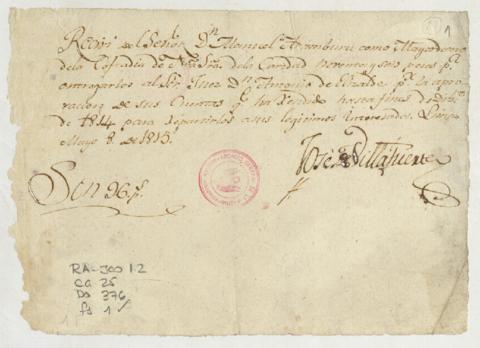 1
Recivi del Señor Dn Manuel Aramburu como Mayordomo
dela Cofradia de Nra Sra. dela Caridad noventa y seis pesos pa.
entregarlos al Sor. Juez Dn Antonio de Elizalde pr. la apro-
vacion de sus Cuentas qe. ha rendido hasta fines de Dibe.
de 1814 para repartirlos a sus legitimos Interesados. Lima
Mayo 8. de 1815.
Jose de Villafuerte
Son 96 ps.
RA-J00 1.2
Ca 25
Do 376
fs 1